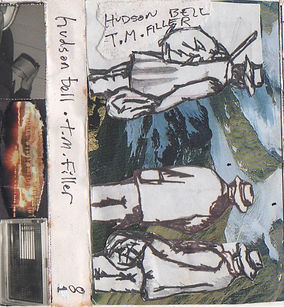 HUDSON BELL
T.M. FILLER
hudson bell . t.m. filler 81